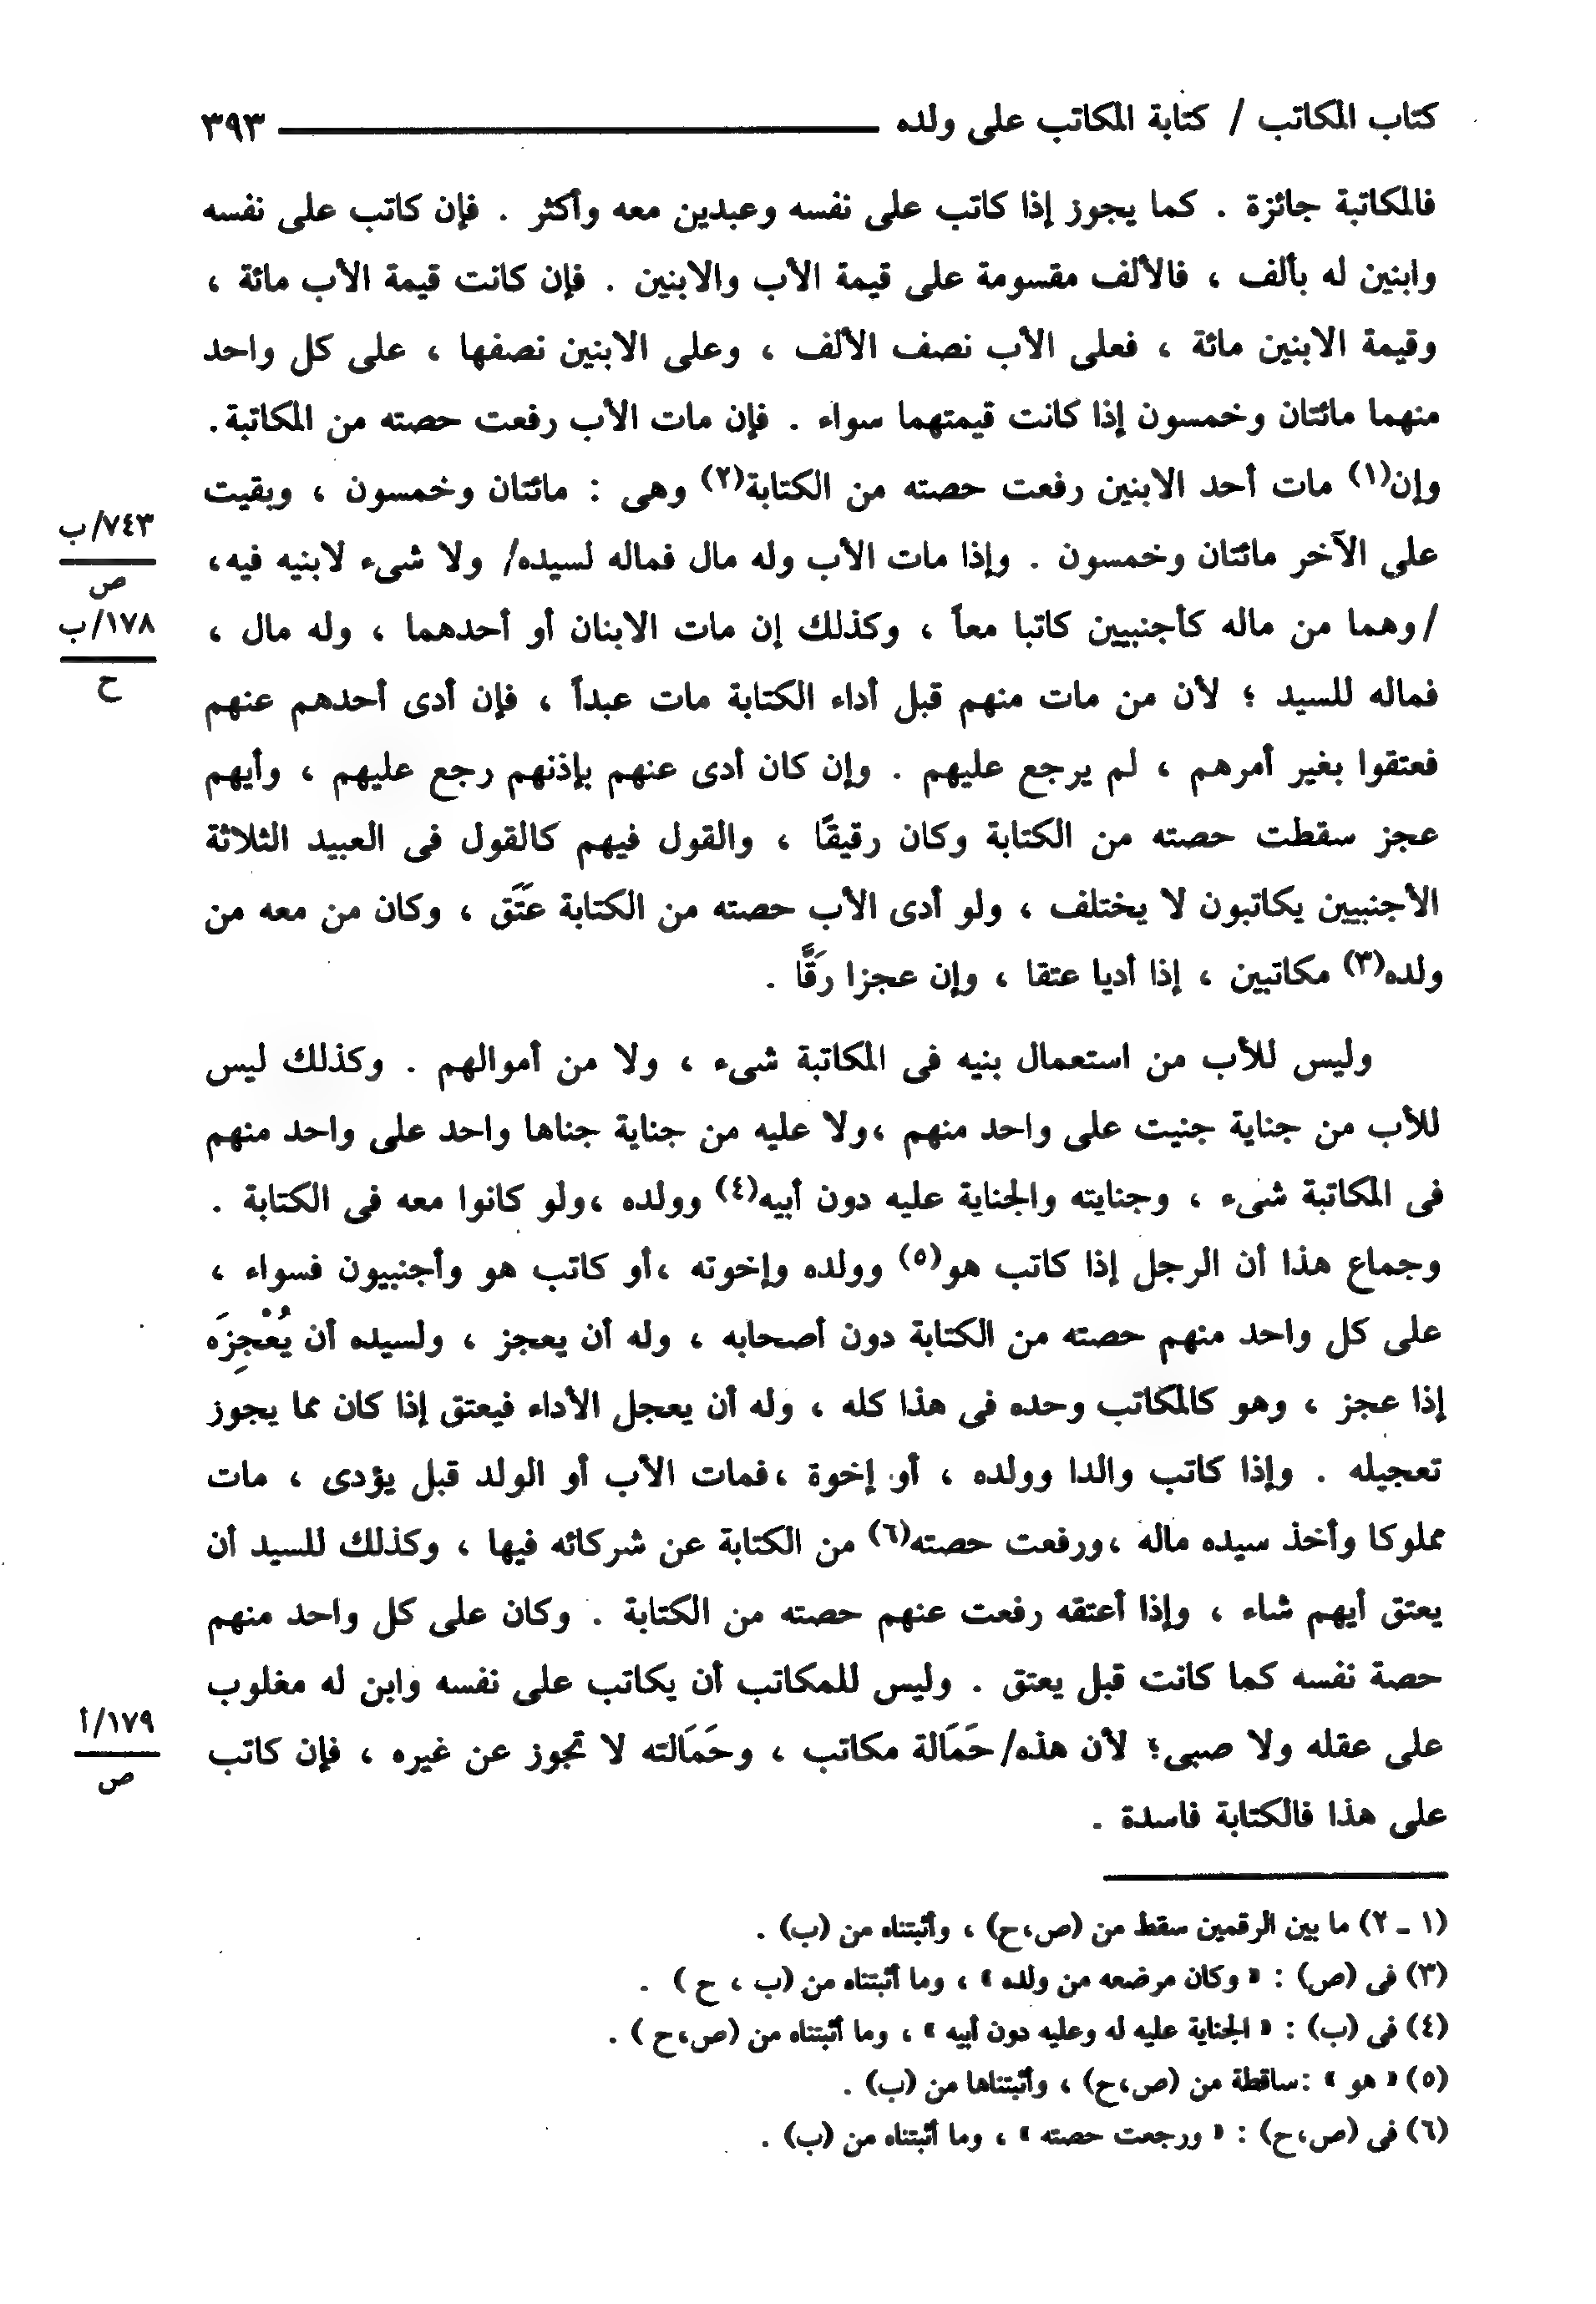 كتاب المكاتب / كتابة المكاتب على ولده ٣٩٣
فالمكاتبة جائزة . كما يجوز إذا كاتب على نفسه وعبدين معه وأكثر . فإن كاتب على نفسه
وابنين له بألف ، فالألف مقسومة على قيمة الأب والابنين . فإن كانت قيمة الأب مائة ،
وقيمة الابنين مائة ، فعلى الأب نصف الألف ، وعلى الابنين نصفها ، على كل واحد
منهما مائتان وخمسون إذا كانت قيمتهما سواء . فإن مات الأب رفعت حصته من المكاتبة.
وإن(١) مات أحد الابنين رفعت حصته من الكتابة(٢) وهى : مائتان وخمسون ، وبقيت
على الآخر مائتان وخمسون . وإذا مات الأب وله مال فماله لسيده/ ولا شىء لابنيه فيه،
/وهما من ماله كأجنبيين كاتبا معاً ، وكذلك إن مات الابنان أو أحدهما ، وله مال ،
فماله للسيد ؛ لأن من مات منهم قبل أداء الكتابة مات عبداً ، فإن أدى أحدهم عنهم
فعتقوا بغير أمرهم ، لم يرجع عليهم . وإن كان أدى عنهم بإذنهم رجع عليهم ، وأيهم
عجز سقطت حصته من الكتابة وكان رقيقًا ، والقول فيهم كالقول فى العبيد الثلاثة
الأجنبيين يكاتبون لا يختلف ، ولو أدى الأب حصته من الكتابة عَتَق ، وكان من معه من
ولده(٣) مكاتبين ، إذا أديا عتقا ، وإن عجزا رَقَّا .
وليس للأب من استعمال بنيه فى المكاتبة شىء ، ولا من أموالهم . وكذلك ليس
للأب من جناية جنيت على واحد منهم ،ولا عليه من جناية جناها واحد على واحد منهم
فى المكاتبة شىء ، وجنايته والجناية عليه دون أبيه(٤) وولده ،ولو كانوا معه فى الكتابة .
وجماع هذا أن الرجل إذا كاتب هو(٥) وولده وإخوته ،أو كاتب هو وأجنبيون فسواء ،
على كل واحد منهم حصته من الكتابة دون أصحابه ، وله أن يعجز ، ولسيده أن يُعْجِزَه
إذا عجز ، وهو كالمكاتب وحده فى هذا كله ، وله أن يعجل الأداء فيعتق إذا كان مما يجوز
تعجيله . وإذا كاتب والدا وولده ، أو إخوة ،فمات الأب أو الولد قبل يؤدى ، مات
مملوكا وأخذ سيده ماله ،ورفعت حصته(٦) من الكتابة عن شركائه فيها ، وكذلك للسيد أن
يعتق أيهم شاء ، وإذا أعتقه رفعت عنهم حصته من الكتابة . وكان على كل واحد منهم
حصة نفسه كما كانت قبل يعتق . وليس للمكاتب أن يكاتب على نفسه وابن له مغلوب
على عقله ولا صبى؛ لأن هذه/حَمَالة مكاتب ، وحَمَالته لا تجوز عن غيره ، فإن كاتب
على هذا فالكتابة فاسدة .
٧٤٣/ب
ص
١٧٨/ب
ح
١٧٩/أ
ص
(١ ـ ٢) ما بين الرقمين سقط من (ص،ح) ، وأثبتناه من (ب) .
(٣) فى (ص) : « وكان مرضعه من ولده » ، وما أثبتناه من (ب ، ح ) .
(٤) فى (ب) : « الجناية عليه له وعليه دون أبيه » ، وما أثبتناه من (ص،ح ) .
(٥) « هو » :ساقطة من (ص،ح) ، وأثبتناها من (ب) .
(٦) فى (ص،ح) : « ورجعت حصته » ، وما أثبتناه من (ب) .